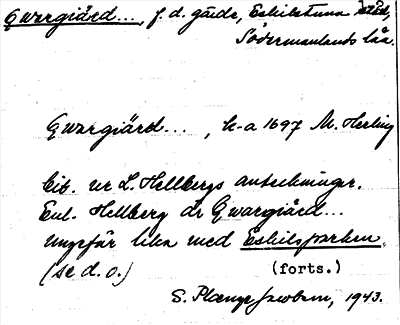 Qwargiärd..., f. d. gärde, Eskilstuna stad,
Södermanlands län.
Qwargiärd..., k-a 1697 M. Herling
Cit. ur L. Hellbergs anteckningar.
Enl. Hellberg är Qwargiärd...
ungefär lika med Eskilsparken,
(se d. o.)
(forts.)
S. 1943.